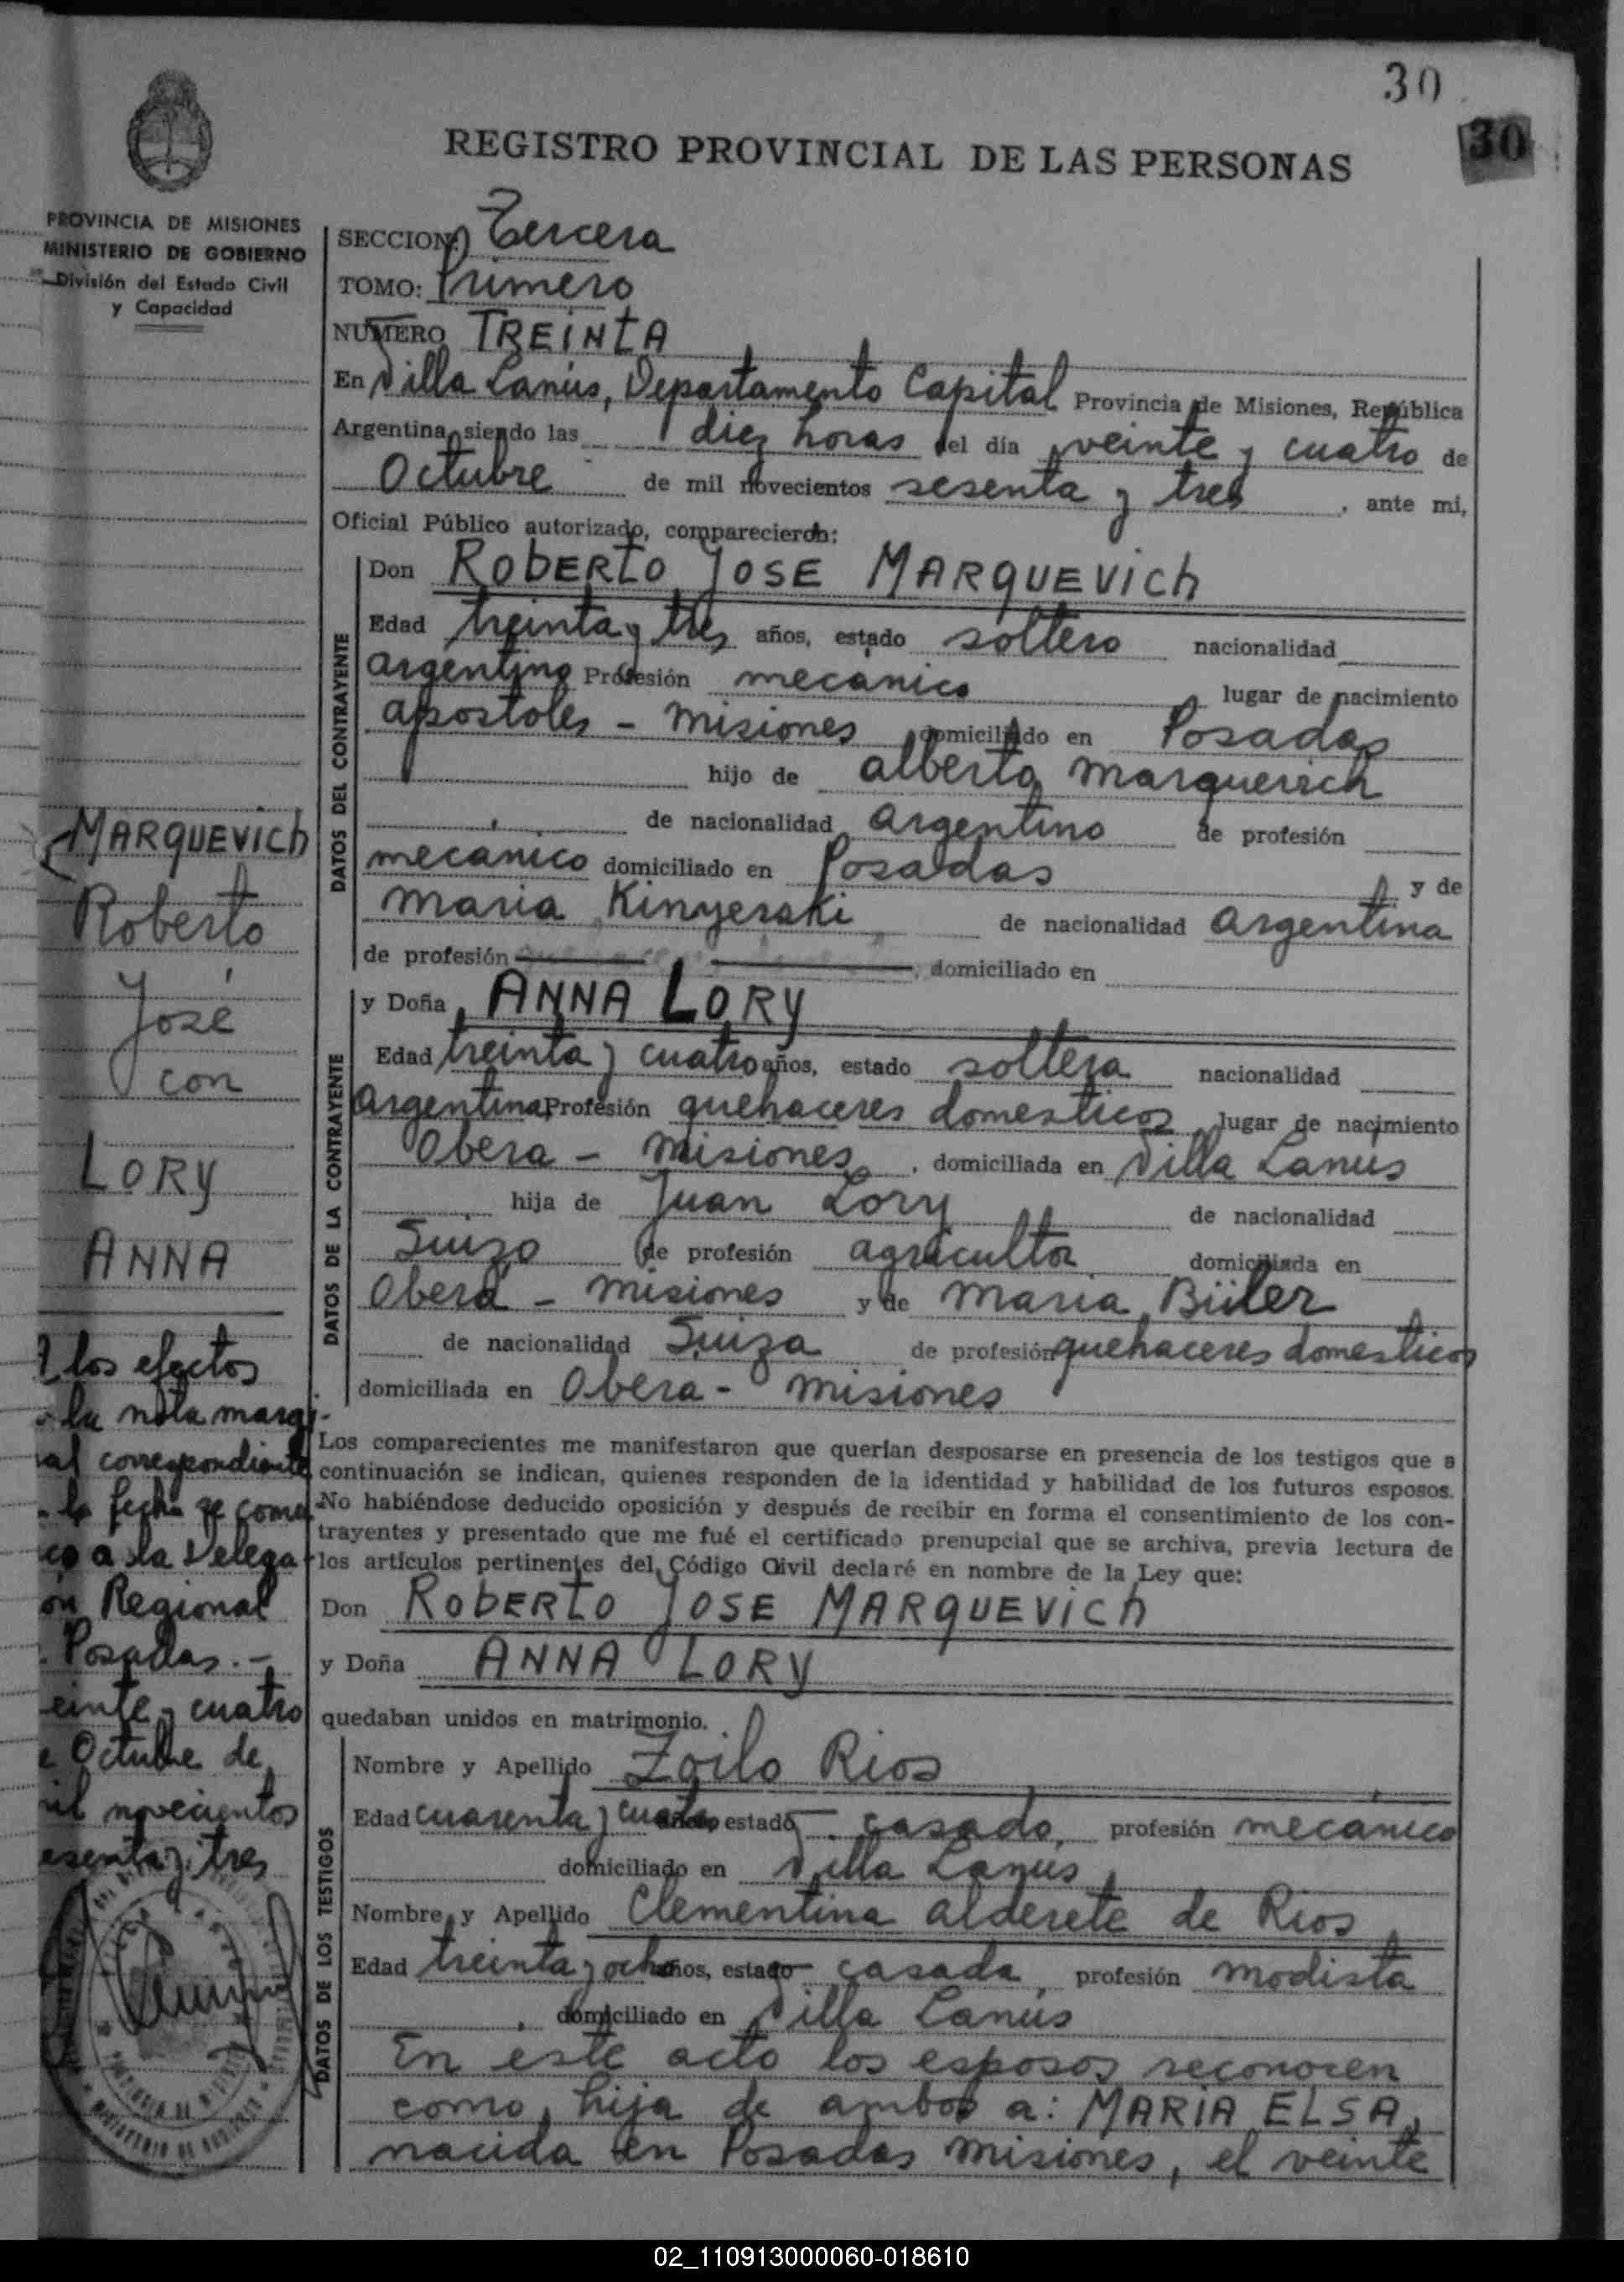 30
30
REGISTRO PROVINCIAL DE LAS PERSONAS
PROVINCIA DE MISIONES
MINISTERIO DE GOBIERNO
División del Estado Civil
y Capacidad
SECCION: Tercera
TOMO: Primero
NUMERO TREINTA
En Villa Lanús, Departamento Capital Provincia de Misiones, República
Argentina, siendo las diez horas del día veinte y cuatro de
Octubre de mil novecientos sesenta y tres, ante mi,
Oficial Público autorizado, comparecieron:
DATOS DEL CONTRAYENTE
Don ROBERTO JOSE MARQUEVICH
Edad treinta y tres años, estado soltero nacionalidad
argentino Profesión mecanico lugar de nacimiento
apostoles - misiones domiciliado en Posadas
hijo de alberto marquevich
de nacionalidad argentino de profesión
mecanico domiciliado en Posadas y de
maria Kinyerski de nacionalidad argentina
de profesión, domiciliado en
DATOS DE LA CONTRAYENTE
y Doña ANNA LORY
Edad treinta y cuatro años, estado soltera nacionalidad
argentina Profesión quehaceres domesticos lugar de nacimiento
Obera - misiones, domiciliada en Villa Lanus
hija de Juan Lory de nacionalidad
Suizo de profesión agricultor domiciliada en
Oberá - misiones y de maria Büler
de nacionalidad Suiza de profesión quehaceres domesticos
domiciliada en Obera - misiones
Los comparecientes me manifestaron que querían desposarse en presencia de los testigos que a
continuación se indican, quienes responden de la identidad y habilidad de los futuros esposos.
No habiéndose deducido oposición y después de recibir en forma el consentimiento de los con-
trayentes y presentado que me fué el certificado prenupcial que se archiva, previa lectura de
los artículos pertinentes del Código Civil declaré en nombre de la Ley que:
Don ROBERTO JOSE MARQUEVICH
y Doña ANNA LORY
quedaban unidos en matrimonio.
DATOS DE LOS TESTIGOS
Nombre y Apellido Zoilo Rios
Edad cuarenta y cuatro años estado casado, profesión mecanico
domiciliado en Villa Lanús
Nombre y Apellido Clementina alderete de Rios
Edad treinta y ocho años, estado casada profesión modista
domiciliado en Villa Lanús
En este acto los esposos reconocen
como hija de ambos a: MARIA ELSA,
nacida en Posadas misiones, el veinte
MARQUEVICH
Roberto
José
con
LORY
ANNA
A los efectos
la nota margi-
nal correspondiente
la fecha se comu
a la Delega-
Regional
Posadas.-
einte y cuatro
Octubre de
mil novecientos
esenta y tres
02_110913000060-018610